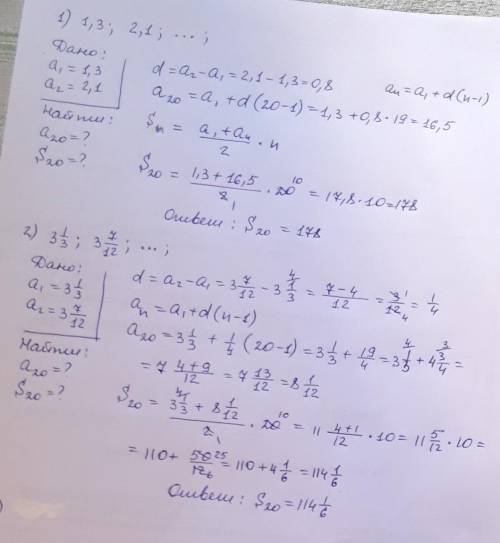 1) 1,3 ; 2,1 ; ... ;
Дано:
a₁ = 1,3
a₂ = 2,1
Найти:
a₂₀ = ?
S₂₀ = ?
d = a₂ - a₁ = 2,1 - 1,3 = 0,8     aₙ = a₁ + d(n-1)
a₂₀ = a₁ + d(20-1) = 1,3 + 0,8 · 19 = 16,5
Sₙ = (a₁ + aₙ)/2 · n
S₂₀ = (1,3 + 16,5)/2 · 20 = 17,8 · 10 = 178
Ответ: S₂₀ = 178
2) 3 1/3 ; 3 7/12 ; ... ;
Дано:
a₁ = 3 1/3
a₂ = 3 7/12
Найти:
a₂₀ = ?
S₂₀ = ?
d = a₂ - a₁ = 3 7/12 - 3 1/3 = (7-4)/12 = 3/12 = 1/4
aₙ = a₁ + d(n-1)
a₂₀ = 3 1/3 + 1/4 (20-1) = 3 1/3 + 19/4 = 3 1/3 + 4 3/4 =
= 7 (4+9)/12 = 7 13/12 = 8 1/12
S₂₀ = (3 1/3 + 8 1/12)/2 · 20 = 11 (4+1)/12 · 10 = 11 5/12 · 10 =
= 110 + 50/12 = 110 + 4 1/6 = 114 1/6
Ответ: S₂₀ = 114 1/6